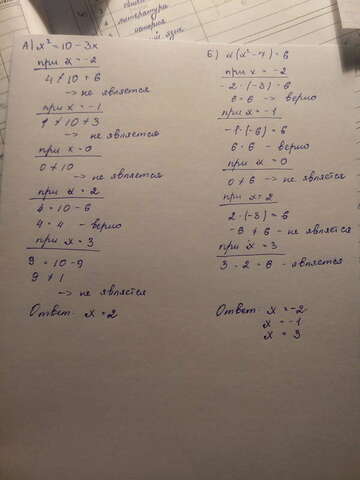 литература
история
А) x² = 10 - 3x
при x = -2
4 ≠ 10 + 6
-> не является
при x = -1
1 ≠ 10 + 3
-> не является
при x = 0
0 ≠ 10
-> не является
при x = 2
4 = 10 - 6
4 = 4 - верно
при x = 3
9 = 10 - 9
9 ≠ 1
-> не является
Ответ: x = 2
Б) x(x² - 7) = 6
при x = -2
-2 · (-3) = 6
6 = 6 -> верно
при x = -1
-1 · (-6) = 6
6 = 6 - верно
при x = 0
0 ≠ 6 -> не является
при x = 2
2 · (-3) = 6
-6 ≠ 6 - не является
при x = 3
3 · 2 = 6 - является
Ответ: x = -2
x = -1
x = 3